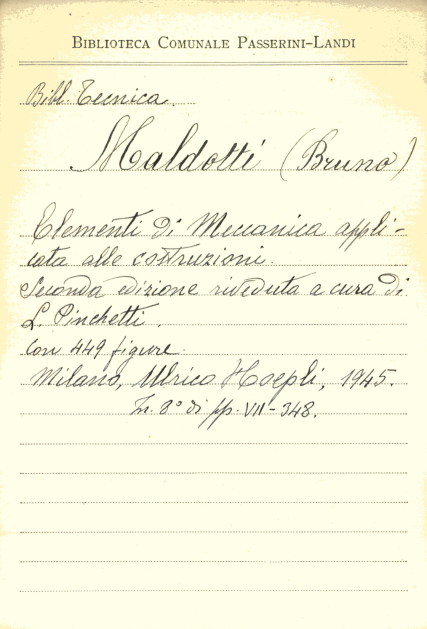 BIBLIOTECA COMUNALE PASSERINI-LANDI
Bibl. Tecnica.
Maldotti (Bruno)
Elementi di Meccanica appli-
cata alle costruzioni.
Seconda edizione riveduta a cura di
L. Pinchetti.
Con 449 figure.
Milano, Ulrico Hoepli, 1945.
In 8° di pp. VII-348.